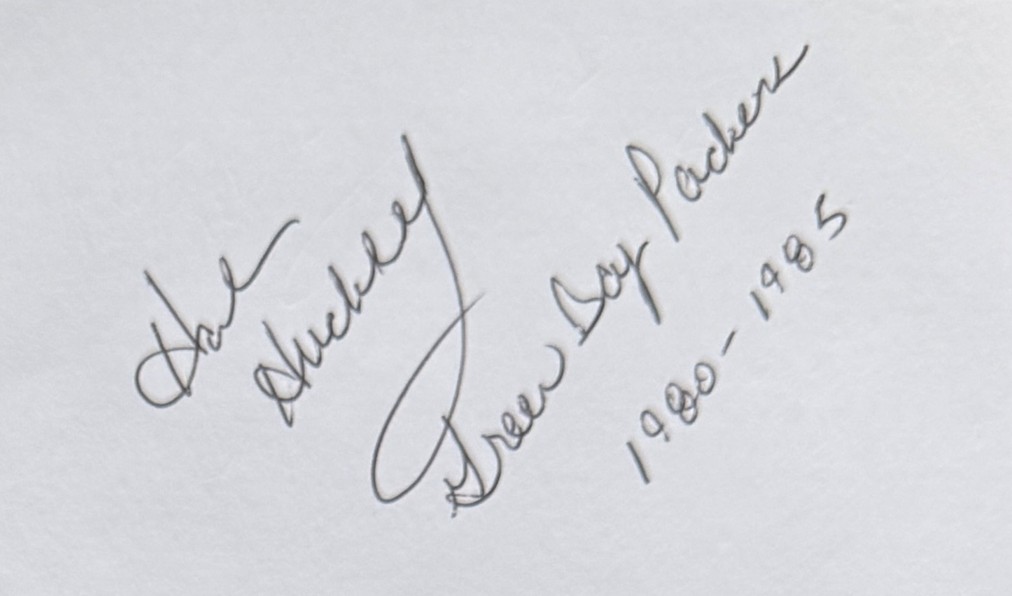 Huckley
Green Bay Packers
1980 - 1985